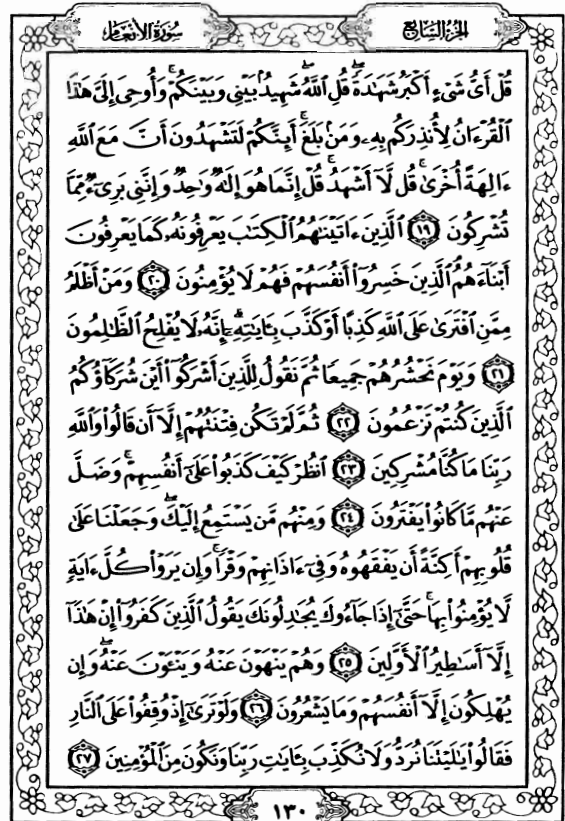 الجزء السابع
سورة الأنعام
قُلْ أَىُّ شَىْءٍ أَكْبَرُ شَهَٰدَةًۖ قُلِ ٱللَّهُۖ شَهِيدُۢ بَيْنِى وَبَيْنَكُمْۚ وَأُوحِىَ إِلَىَّ هَٰذَا
ٱلْقُرْءَانُ لِأُنذِرَكُم بِهِۦ وَمَنۢ بَلَغَۚ أَئِنَّكُمْ لَتَشْهَدُونَ أَنَّ مَعَ ٱللَّهِ
ءَالِهَةً أُخْرَىٰۚ قُل لَّآ أَشْهَدُۚ قُلْ إِنَّمَا هُوَ إِلَٰهٌ وَٰحِدٌ وَإِنَّنِى بَرِىٓءٌ مِّمَّا
تُشْرِكُونَ ١٩ ٱلَّذِينَ ءَاتَيْنَٰهُمُ ٱلْكِتَٰبَ يَعْرِفُونَهُۥ كَمَا يَعْرِفُونَ
أَبْنَآءَهُمُۘ ٱلَّذِينَ خَسِرُوٓا۟ أَنفُسَهُمْ فَهُمْ لَا يُؤْمِنُونَ ٢٠ وَمَنْ أَظْلَمُ
مِمَّنِ ٱفْتَرَىٰ عَلَى ٱللَّهِ كَذِبًا أَوْ كَذَّبَ بِـَٔايَٰتِهِۦٓۗ إِنَّهُۥ لَا يُفْلِحُ ٱلظَّٰلِمُونَ
٢١ وَيَوْمَ نَحْشُرُهُمْ جَمِيعًا ثُمَّ نَقُولُ لِلَّذِينَ أَشْرَكُوٓا۟ أَيْنَ شُرَكَآؤُكُمُ
ٱلَّذِينَ كُنتُمْ تَزْعُمُونَ ٢٢ ثُمَّ لَمْ تَكُن فِتْنَتُهُمْ إِلَّآ أَن قَالُوا۟ وَٱللَّهِ
رَبِّنَا مَا كُنَّا مُشْرِكِينَ ٢٣ ٱنظُرْ كَيْفَ كَذَبُوا۟ عَلَىٰٓ أَنفُسِهِمْۚ وَضَلَّ
عَنْهُم مَّا كَانُوا۟ يَفْتَرُونَ ٢٤ وَمِنْهُم مَّن يَسْتَمِعُ إِلَيْكَۖ وَجَعَلْنَا عَلَىٰ
قُلُوبِهِمْ أَكِنَّةً أَن يَفْقَهُوهُ وَفِىٓ ءَاذَانِهِمْ وَقْرًاۚ وَإِن يَرَوْا۟ كُلَّ ءَايَةٍ
لَّا يُؤْمِنُوا۟ بِهَاۚ حَتَّىٰٓ إِذَا جَآءُوكَ يُجَٰدِلُونَكَ يَقُولُ ٱلَّذِينَ كَفَرُوٓا۟ إِنْ هَٰذَآ
إِلَّآ أَسَٰطِيرُ ٱلْأَوَّلِينَ ٢٥ وَهُمْ يَنْهَوْنَ عَنْهُ وَيَنْـَٔوْنَ عَنْهُۖ وَإِن
يُهْلِكُونَ إِلَّآ أَنفُسَهُمْ وَمَا يَشْعُرُونَ ٢٦ وَلَوْ تَرَىٰٓ إِذْ وُقِفُوا۟ عَلَى ٱلنَّارِ
فَقَالُوا۟ يَٰلَيْتَنَا نُرَدُّ وَلَا نُكَذِّبَ بِـَٔايَٰتِ رَبِّنَا وَنَكُونَ مِنَ ٱلْمُؤْمِنِينَ ٢٧
١٣٠